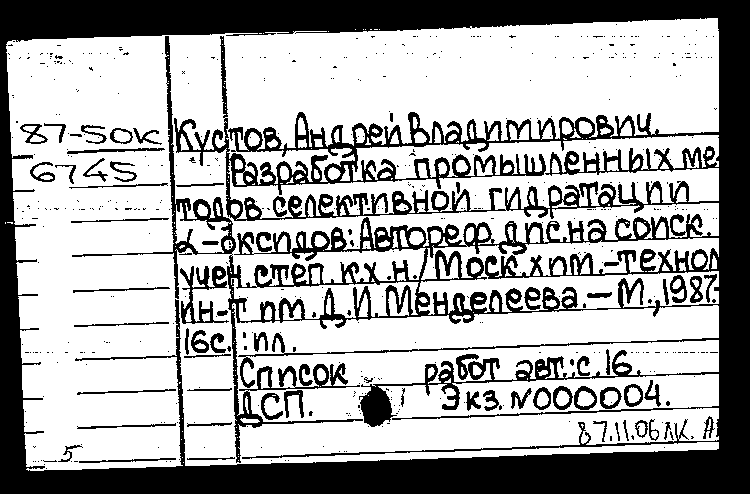 87-50К Кустов, Андрей Владимирович.
6745 Разработка промышленных ме-
тодов селективной гидратации
α-оксидов: Автореф. дис. на соиск.
учен. степ. к.х.н. / Моск. хим.-технол
ин-т им. Д.И. Менделеева. — М., 1987.-
16с. : ил.
Список работ авт.: с.16.
ДСП. Экз. N000004.
87.11.06 ЛК.
5